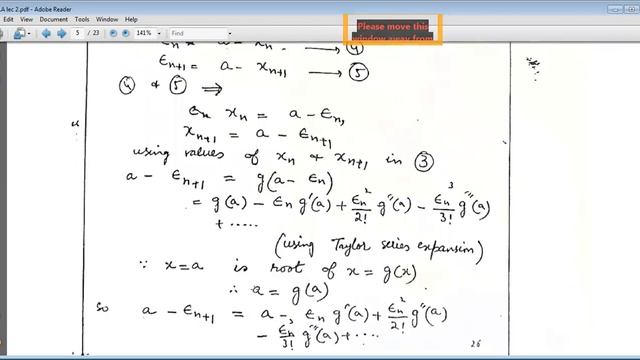 A lec 2.pdf - Adobe Reader
Edit View Document Tools Window Help
5 / 23 141% Find
Please move this
window away from
ϵn = a - xn → ④
ϵn+1 = a - xn+1 → ⑤
④ & ⑤ ⇒
xn = a - ϵn,
xn+1 = a - ϵn+1
using values of xn & xn+1 in ③
a - ϵn+1 = g(a - ϵn)
= g(a) - ϵn g'(a) + ϵn²/2! g''(a) - ϵn³/3! g'''(a)
+ .....
(using Taylor series expansion)
∵ x=a is root of x = g(x)
∴ a = g(a)
so a - ϵn+1 = a - ϵn g'(a) + ϵn²/2! g''(a)
- ϵn³/3! g'''(a) + ....
26